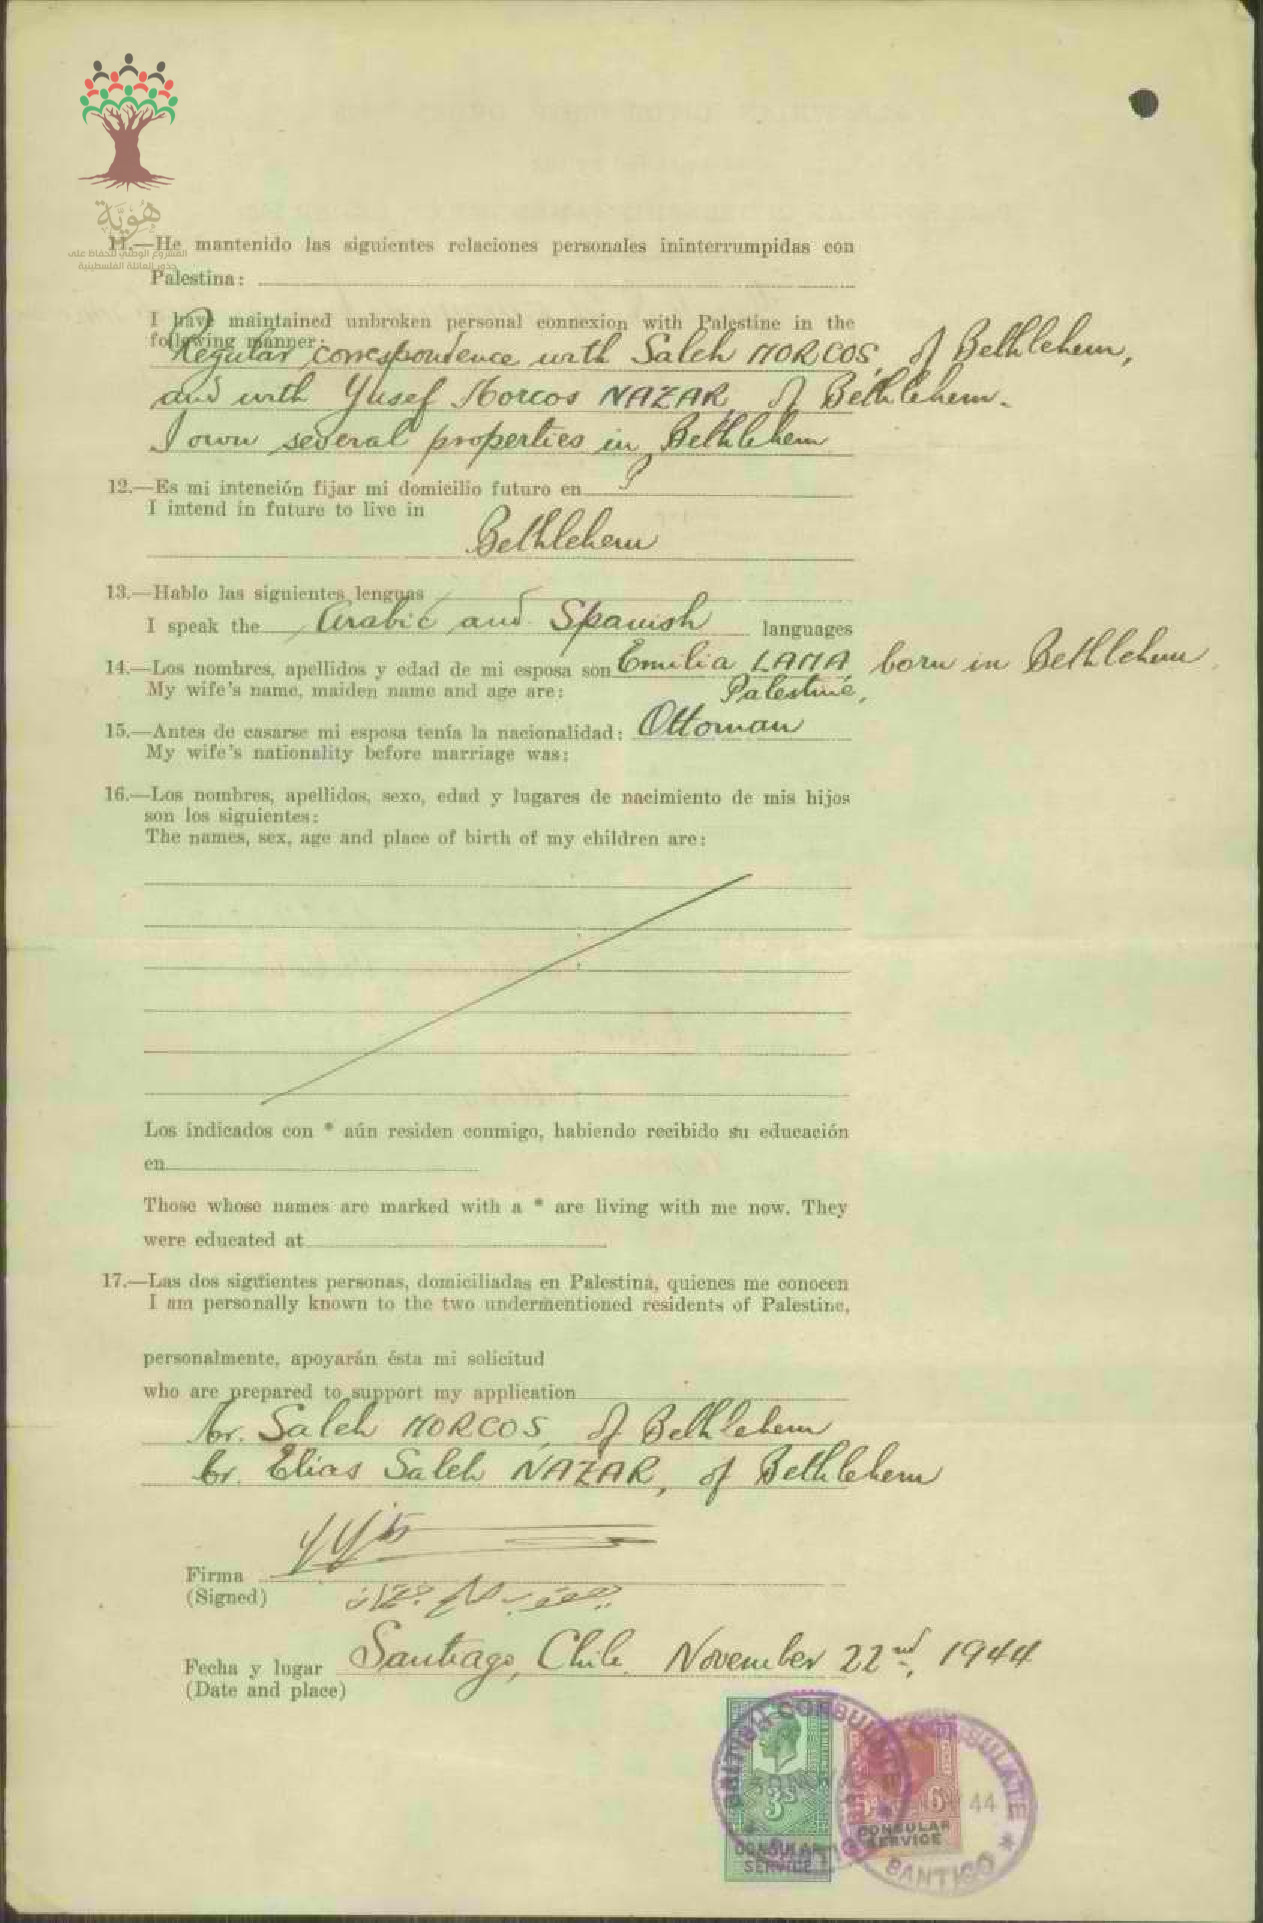 هُويَّة
المشروع الوطني للحفاظ على
جذور العائلة الفلسطينية
11.—He mantenido las siguientes relaciones personales ininterrumpidas con
Palestina:
I have maintained unbroken personal connexion with Palestine in the
following manner:
Regular correspondence with Saleh MORCOS, of Bethlehem,
and with Yusef Morcos NAZAR, of Bethlehem.
I own several properties in Bethlehem
12.—Es mi intención fijar mi domicilio futuro en
I intend in future to live in
Bethlehem
13.—Hablo las siguientes lenguas
I speak the Arabic and Spanish languages
14.—Los nombres, apellidos y edad de mi esposa son Emilia LAMA, born in Bethlehem,
My wife's name, maiden name and age are: Palestine,
15.—Antes de casarse mi esposa tenía la nacionalidad: Ottoman
My wife's nationality before marriage was:
16.—Los nombres, apellidos, sexo, edad y lugares de nacimiento de mis hijos
son los siguientes:
The names, sex, age and place of birth of my children are:
Los indicados con * aún residen conmigo, habiendo recibido su educación
en
Those whose names are marked with a * are living with me now. They
were educated at
17.—Las dos siguientes personas, domiciliadas en Palestina, quienes me conocen
I am personally known to the two undermentioned residents of Palestine,
personalmente, apoyarán ésta mi solicitud
who are prepared to support my application
Saleh MORCOS, of Bethlehem
Elias Saleh NAZAR, of Bethlehem
Firma
(Signed)
يعقوب صالح
Fecha y lugar Santiago, Chile. November 22nd, 1944
(Date and place)
BRITISH CONSULATE
CONSULATE
30 NOV
44
3s
6
CONSULAR
SERVICE
CONSULAR
SERVICE
SANTIGO